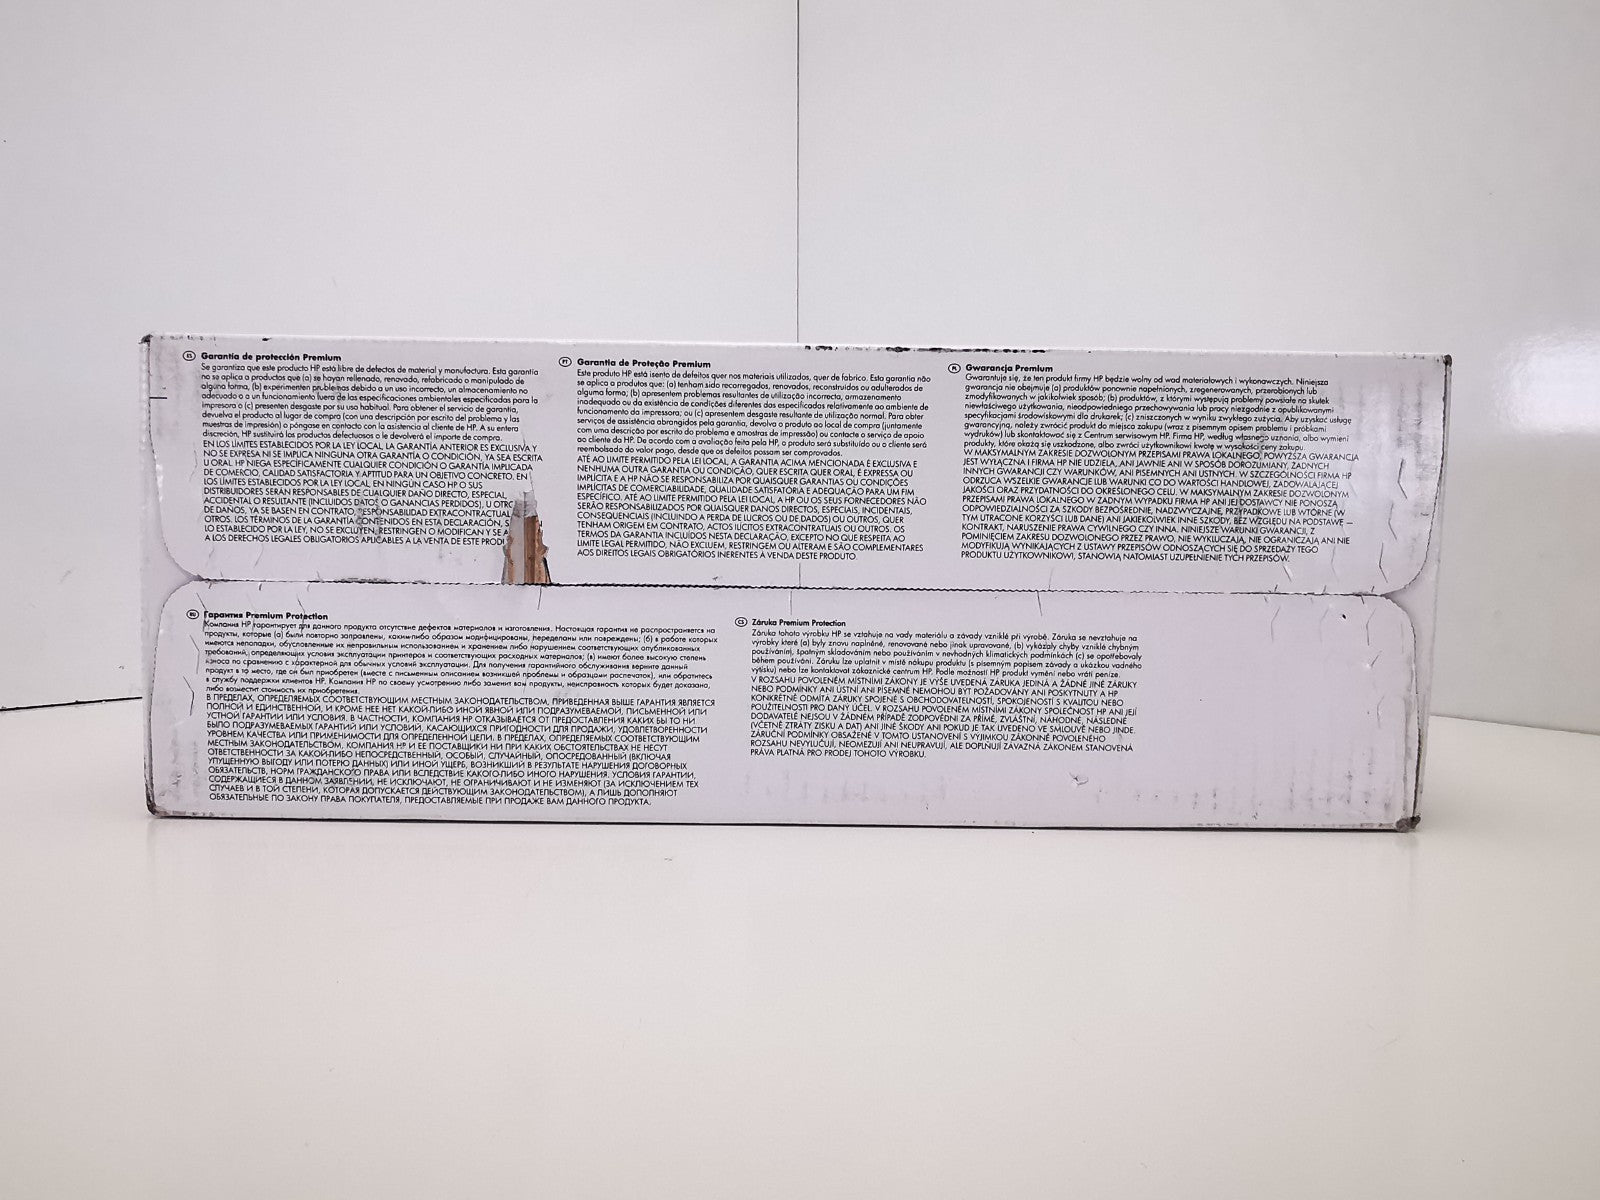 ES Garantía de protección Premium
Se garantiza que este producto HP está libre de defectos de material y manufactura. Esta garantía
no se aplica a productos que (a) se hayan rellenado, renovado, refabricado o manipulado de
alguna forma, (b) experimenten problemas debido a un uso incorrecto, un almacenamiento no
adecuado o a un funcionamiento fuera de las especificaciones ambientales especificadas para la
impresora o (c) presenten desgaste por su uso habitual. Para obtener el servicio de garantía,
devuelva el producto al lugar de compra (con una descripción por escrito del problema y las
muestras de impresión) o póngase en contacto con la asistencia al cliente de HP. A su entera
discreción, HP sustituirá los productos defectuosos o le devolverá el importe de compra.
EN LOS LÍMITES ESTABLECIDOS POR LA LEY LOCAL, LA GARANTÍA ANTERIOR ES EXCLUSIVA Y
NO SE EXPRESA NI SE IMPLICA NINGUNA OTRA GARANTÍA O CONDICIÓN, YA SEA ESCRITA
U ORAL. HP NIEGA ESPECÍFICAMENTE CUALQUIER CONDICIÓN O GARANTÍA IMPLICADA
DE COMERCIO, CALIDAD SATISFACTORIA Y APTITUD PARA UN OBJETIVO CONCRETO. EN
LOS LÍMITES ESTABLECIDOS POR LA LEY LOCAL, EN NINGÚN CASO HP O SUS
DISTRIBUIDORES SERÁN RESPONSABLES DE CUALQUIER DAÑO DIRECTO, ESPECIAL,
ACCIDENTAL O RESULTANTE (INCLUIDOS DATOS O GANANCIAS PERDIDOS), U OTRO
DE DAÑOS, YA SE BASEN EN CONTRATO, RESPONSABILIDAD EXTRACONTRACTUAL
OTROS. LOS TÉRMINOS DE LA GARANTÍA CONTENIDOS EN ESTA DECLARACIÓN, S
LO ESTABLECIDO POR LA LEY, NO SE EXCLUYEN, RESTRINGEN O MODIFICAN Y SE A
A LOS DERECHOS LEGALES OBLIGATORIOS APLICABLES A LA VENTA DE ESTE PRODU
PT Garantia de Proteção Premium
Este produto HP está isento de defeitos quer nos materiais utilizados, quer de fabrico. Esta garantia não
se aplica a produtos que: (a) tenham sido recarregados, renovados, reconstruídos ou adulterados de
alguma forma; (b) apresentem problemas resultantes de utilização incorrecta, armazenamento
inadequado ou da existência de condições diferentes das especificadas relativamente ao ambiente de
funcionamento da impressora; ou (c) apresentem desgaste resultante de utilização normal. Para obter
serviços de assistência abrangidos pela garantia, devolva o produto ao local de compra (juntamente
com uma descrição por escrito do problema e amostras de impressão) ou contacte o serviço de apoio
ao cliente da HP. De acordo com a avaliação feita pela HP, o produto será substituído ou o cliente será
reembolsado do valor pago, desde que os defeitos possam ser comprovados.
ATÉ AO LIMITE PERMITIDO PELA LEI LOCAL, A GARANTIA ACIMA MENCIONADA É EXCLUSIVA E
NENHUMA OUTRA GARANTIA OU CONDIÇÃO, QUER ESCRITA QUER ORAL, É EXPRESSA OU
IMPLÍCITA E A HP NÃO SE RESPONSABILIZA POR QUAISQUER GARANTIAS OU CONDIÇÕES
IMPLÍCITAS DE COMERCIABILIDADE, QUALIDADE SATISFATÓRIA E ADEQUAÇÃO PARA UM FIM
ESPECÍFICO. ATÉ AO LIMITE PERMITIDO PELA LEI LOCAL, A HP OU OS SEUS FORNECEDORES NÃO
SERÃO RESPONSABILIZADOS POR QUAISQUER DANOS DIRECTOS, ESPECIAIS, INCIDENTAIS,
CONSEQUENCIAIS (INCLUINDO A PERDA DE LUCROS OU DE DADOS) OU OUTROS, QUER
TENHAM ORIGEM EM CONTRATO, ACTOS ILÍCITOS EXTRACONTRATUAIS OU OUTROS. OS
TERMOS DA GARANTIA INCLUÍDOS NESTA DECLARAÇÃO, EXCEPTO NO QUE RESPEITA AO
LIMITE LEGAL PERMITIDO, NÃO EXCLUEM, RESTRINGEM OU ALTERAM E SÃO COMPLEMENTARES
AOS DIREITOS LEGAIS OBRIGATÓRIOS INERENTES À VENDA DESTE PRODUTO.
PL Gwarancja Premium
Gwarantuje się, że ten produkt firmy HP będzie wolny od wad materiałowych i wykonawczych. Niniejsza
gwarancja nie obejmuje (a) produktów ponownie napełnionych, zregenerowanych, przerobionych lub
zmodyfikowanych w jakikolwiek sposób; (b) produktów, z którymi występują problemy powstałe na skutek
niewłaściwego użytkowania, nieodpowiedniego przechowywania lub pracy niezgodnie z opublikowanymi
specyfikacjami środowiskowymi dla drukarek; (c) zniszczonych w wyniku zwykłego zużycia. Aby uzyskać usługę
gwarancyjną, należy zwrócić produkt do miejsca zakupu (wraz z pisemnym opisem problemu i próbkami
wydruków) lub skontaktować się z Centrum serwisowym HP. Firma HP, według własnego uznania, albo wymieni
produkty, które okażą się uszkodzone, albo zwróci użytkownikowi kwotę w wysokości ceny zakupu.
W MAKSYMALNYM ZAKRESIE DOZWOLONYM PRZEPISAMI PRAWA LOKALNEGO, POWYŻSZA GWARANCJA
JEST WYŁĄCZNA I FIRMA HP NIE UDZIELA, ANI JAWNIE ANI W SPOSÓB DOROZUMIANY, ŻADNYCH
INNYCH GWARANCJI CZY WARUNKÓW, ANI PISEMNYCH ANI USTNYCH. W SZCZEGÓLNOŚCI FIRMA HP
ODRZUCA WSZELKIE GWARANCJE LUB WARUNKI CO DO WARTOŚCI HANDLOWEJ, ZADOWALAJĄCEJ
JAKOŚCI ORAZ PRZYDATNOŚCI DO OKREŚLONEGO CELU. W MAKSYMALNYM ZAKRESIE DOZWOLONYM
PRZEPISAMI PRAWA LOKALNEGO W ŻADNYM WYPADKU FIRMA HP ANI JEJ DOSTAWCY NIE PONOSZĄ
ODPOWIEDZIALNOŚCI ZA SZKODY BEZPOŚREDNIE, NADZWYCZAJNE, PRZYPADKOWE LUB WTÓRNE (W
TYM UTRACONE KORZYŚCI LUB DANE) ANI JAKIEKOLWIEK INNE SZKODY, BEZ WZGLĘDU NA PODSTAWĘ —
KONTRAKT, NARUSZENIE PRAWA CYWILNEGO CZY INNA. NINIEJSZE WARUNKI GWARANCJI, Z
POMINIĘCIEM ZAKRESU DOZWOLONEGO PRZEZ PRAWO, NIE WYKLUCZAJĄ, NIE OGRANICZAJĄ ANI NIE
MODYFIKUJĄ WYNIKAJĄCYCH Z USTAWY PRZEPISÓW ODNOSZĄCYCH SIĘ DO SPRZEDAŻY TEGO
PRODUKTU UŻYTKOWNIKOWI, STANOWIĄ NATOMIAST UZUPEŁNIENIE TYCH PRZEPISÓW.
RU Гарантия Premium Protection
Компания HP гарантирует для данного продукта отсутствие дефектов материалов и изготовления. Настоящая гарантия не распространяется на
продукты, которые (а) были повторно заправлены, каким-либо образом модифицированы, переделаны или повреждены; (б) в работе которых
имеются неполадки, обусловленные их неправильным использованием и хранением либо нарушением соответствующих опубликованных
требований, определяющих условия эксплуатации принтеров и соответствующих расходных материалов; (в) имеют более высокую степень
износа по сравнению с характерной для обычных условий эксплуатации. Для получения гарантийного обслуживания верните данный
продукт в то место, где он был приобретен (вместе с письменным описанием возникшей проблемы и образцами распечаток), или обратитесь
в службу поддержки клиентов HP. Компания HP по своему усмотрению либо заменит вам продукты, неисправность которых будет доказана,
либо возместит стоимость их приобретения.
В ПРЕДЕЛАХ, ОПРЕДЕЛЯЕМЫХ СООТВЕТСТВУЮЩИМ МЕСТНЫМ ЗАКОНОДАТЕЛЬСТВОМ, ПРИВЕДЕННАЯ ВЫШЕ ГАРАНТИЯ ЯВЛЯЕТСЯ
ПОЛНОЙ И ЕДИНСТВЕННОЙ, И КРОМЕ НЕЕ НЕТ КАКОЙ-ЛИБО ИНОЙ ЯВНОЙ ИЛИ ПОДРАЗУМЕВАЕМОЙ, ПИСЬМЕННОЙ ИЛИ
УСТНОЙ ГАРАНТИИ ИЛИ УСЛОВИЯ. В ЧАСТНОСТИ, КОМПАНИЯ HP ОТКАЗЫВАЕТСЯ ОТ ПРЕДОСТАВЛЕНИЯ КАКИХ БЫ ТО НИ
БЫЛО ПОДРАЗУМЕВАЕМЫХ ГАРАНТИЙ ИЛИ УСЛОВИЙ, КАСАЮЩИХСЯ ПРИГОДНОСТИ ДЛЯ ПРОДАЖИ, УДОВЛЕТВОРЕННОСТИ
УРОВНЕМ КАЧЕСТВА ИЛИ ПРИМЕНИМОСТИ ДЛЯ ОПРЕДЕЛЕННОЙ ЦЕЛИ. В ПРЕДЕЛАХ, ОПРЕДЕЛЯЕМЫХ СООТВЕТСТВУЮЩИМ
МЕСТНЫМ ЗАКОНОДАТЕЛЬСТВОМ, КОМПАНИЯ HP И ЕЕ ПОСТАВЩИКИ НИ ПРИ КАКИХ ОБСТОЯТЕЛЬСТВАХ НЕ НЕСУТ
ОТВЕТСТВЕННОСТИ ЗА КАКОЙ-ЛИБО НЕПОСРЕДСТВЕННЫЙ, ОСОБЫЙ, СЛУЧАЙНЫЙ, ОПОСРЕДОВАННЫЙ (ВКЛЮЧАЯ
УПУЩЕННУЮ ВЫГОДУ ИЛИ ПОТЕРЮ ДАННЫХ) ИЛИ ИНОЙ УЩЕРБ, ВОЗНИКШИЙ В РЕЗУЛЬТАТЕ НАРУШЕНИЯ ДОГОВОРНЫХ
ОБЯЗАТЕЛЬСТВ, НОРМ ГРАЖДАНСКОГО ПРАВА ИЛИ ВСЛЕДСТВИЕ КАКОГО-ЛИБО ИНОГО НАРУШЕНИЯ. УСЛОВИЯ ГАРАНТИИ,
СОДЕРЖАЩИЕСЯ В ДАННОМ ЗАЯВЛЕНИИ, НЕ ИСКЛЮЧАЮТ, НЕ ОГРАНИЧИВАЮТ И НЕ ИЗМЕНЯЮТ (ЗА ИСКЛЮЧЕНИЕМ ТЕХ
СЛУЧАЕВ И В ТОЙ СТЕПЕНИ, КОТОРАЯ ДОПУСКАЕТСЯ ДЕЙСТВУЮЩИМ ЗАКОНОДАТЕЛЬСТВОМ), А ЛИШЬ ДОПОЛНЯЮТ
ОБЯЗАТЕЛЬНЫЕ ПО ЗАКОНУ ПРАВА ПОКУПАТЕЛЯ, ПРЕДОСТАВЛЯЕМЫЕ ПРИ ПРОДАЖЕ ВАМ ДАННОГО ПРОДУКТА.
CS Záruka Premium Protection
Záruka tohoto výrobku HP se vztahuje na vady materiálu a závady vzniklé při výrobě. Záruka se nevztahuje na
výrobky které (a) byly znovu naplněné, renovované nebo jinak upravované, (b) vykázaly chyby vzniklé chybným
používáním, špatným skladováním nebo používáním v nevhodných klimatických podmínkách (c) se opotřebovaly
během používání. Záruku lze uplatnit v místě nákupu produktu (s písemným popisem závady a ukázkou vadného
výtisku) nebo lze kontaktovat zákaznické centrum HP. Podle možností HP produkt vymění nebo vrátí peníze.
V ROZSAHU POVOLENÉM MÍSTNÍMI ZÁKONY JE VÝŠE UVEDENÁ ZÁRUKA JEDINÁ A ŽÁDNÉ JINÉ ZÁRUKY
NEBO PODMÍNKY ANI ÚSTNÍ ANI PÍSEMNÉ NEMOHOU BÝT POŽADOVÁNY ANI POSKYTNUTY A HP
KONKRÉTNĚ ODMÍTÁ ZÁRUKY SPOJENÉ S OBCHODOVATELNOSTÍ, SPOKOJENOSTÍ S KVALITOU NEBO
POUŽITELNOSTI PRO DANÝ ÚČEL. V ROZSAHU POVOLENÉM MÍSTNÍMI ZÁKONY SPOLEČNOST HP ANI JEJÍ
DODAVATELÉ NEJSOU V ŽÁDNÉM PŘÍPADĚ ZODPOVĚDNÍ ZA PŘÍMÉ, ZVLÁŠTNÍ, NÁHODNÉ, NÁSLEDNÉ
(VČETNĚ ZTRÁTY ZISKU A DAT) ANI JINÉ ŠKODY ANI POKUD JE TAK UVEDENO VE SMLOUVĚ NEBO JINDE.
ZÁRUČNÍ PODMÍNKY OBSAŽENÉ V TOMTO USTANOVENÍ S VÝJIMKOU ZÁKONNĚ POVOLENÉHO
ROZSAHU NEVYLUČUJÍ, NEOMEZUJÍ ANI NEUPRAVUJÍ, ALE DOPLŇUJÍ ZÁVAZNÁ ZÁKONEM STANOVENÁ
PRÁVA PLATNÁ PRO PRODEJ TOHOTO VÝROBKU.